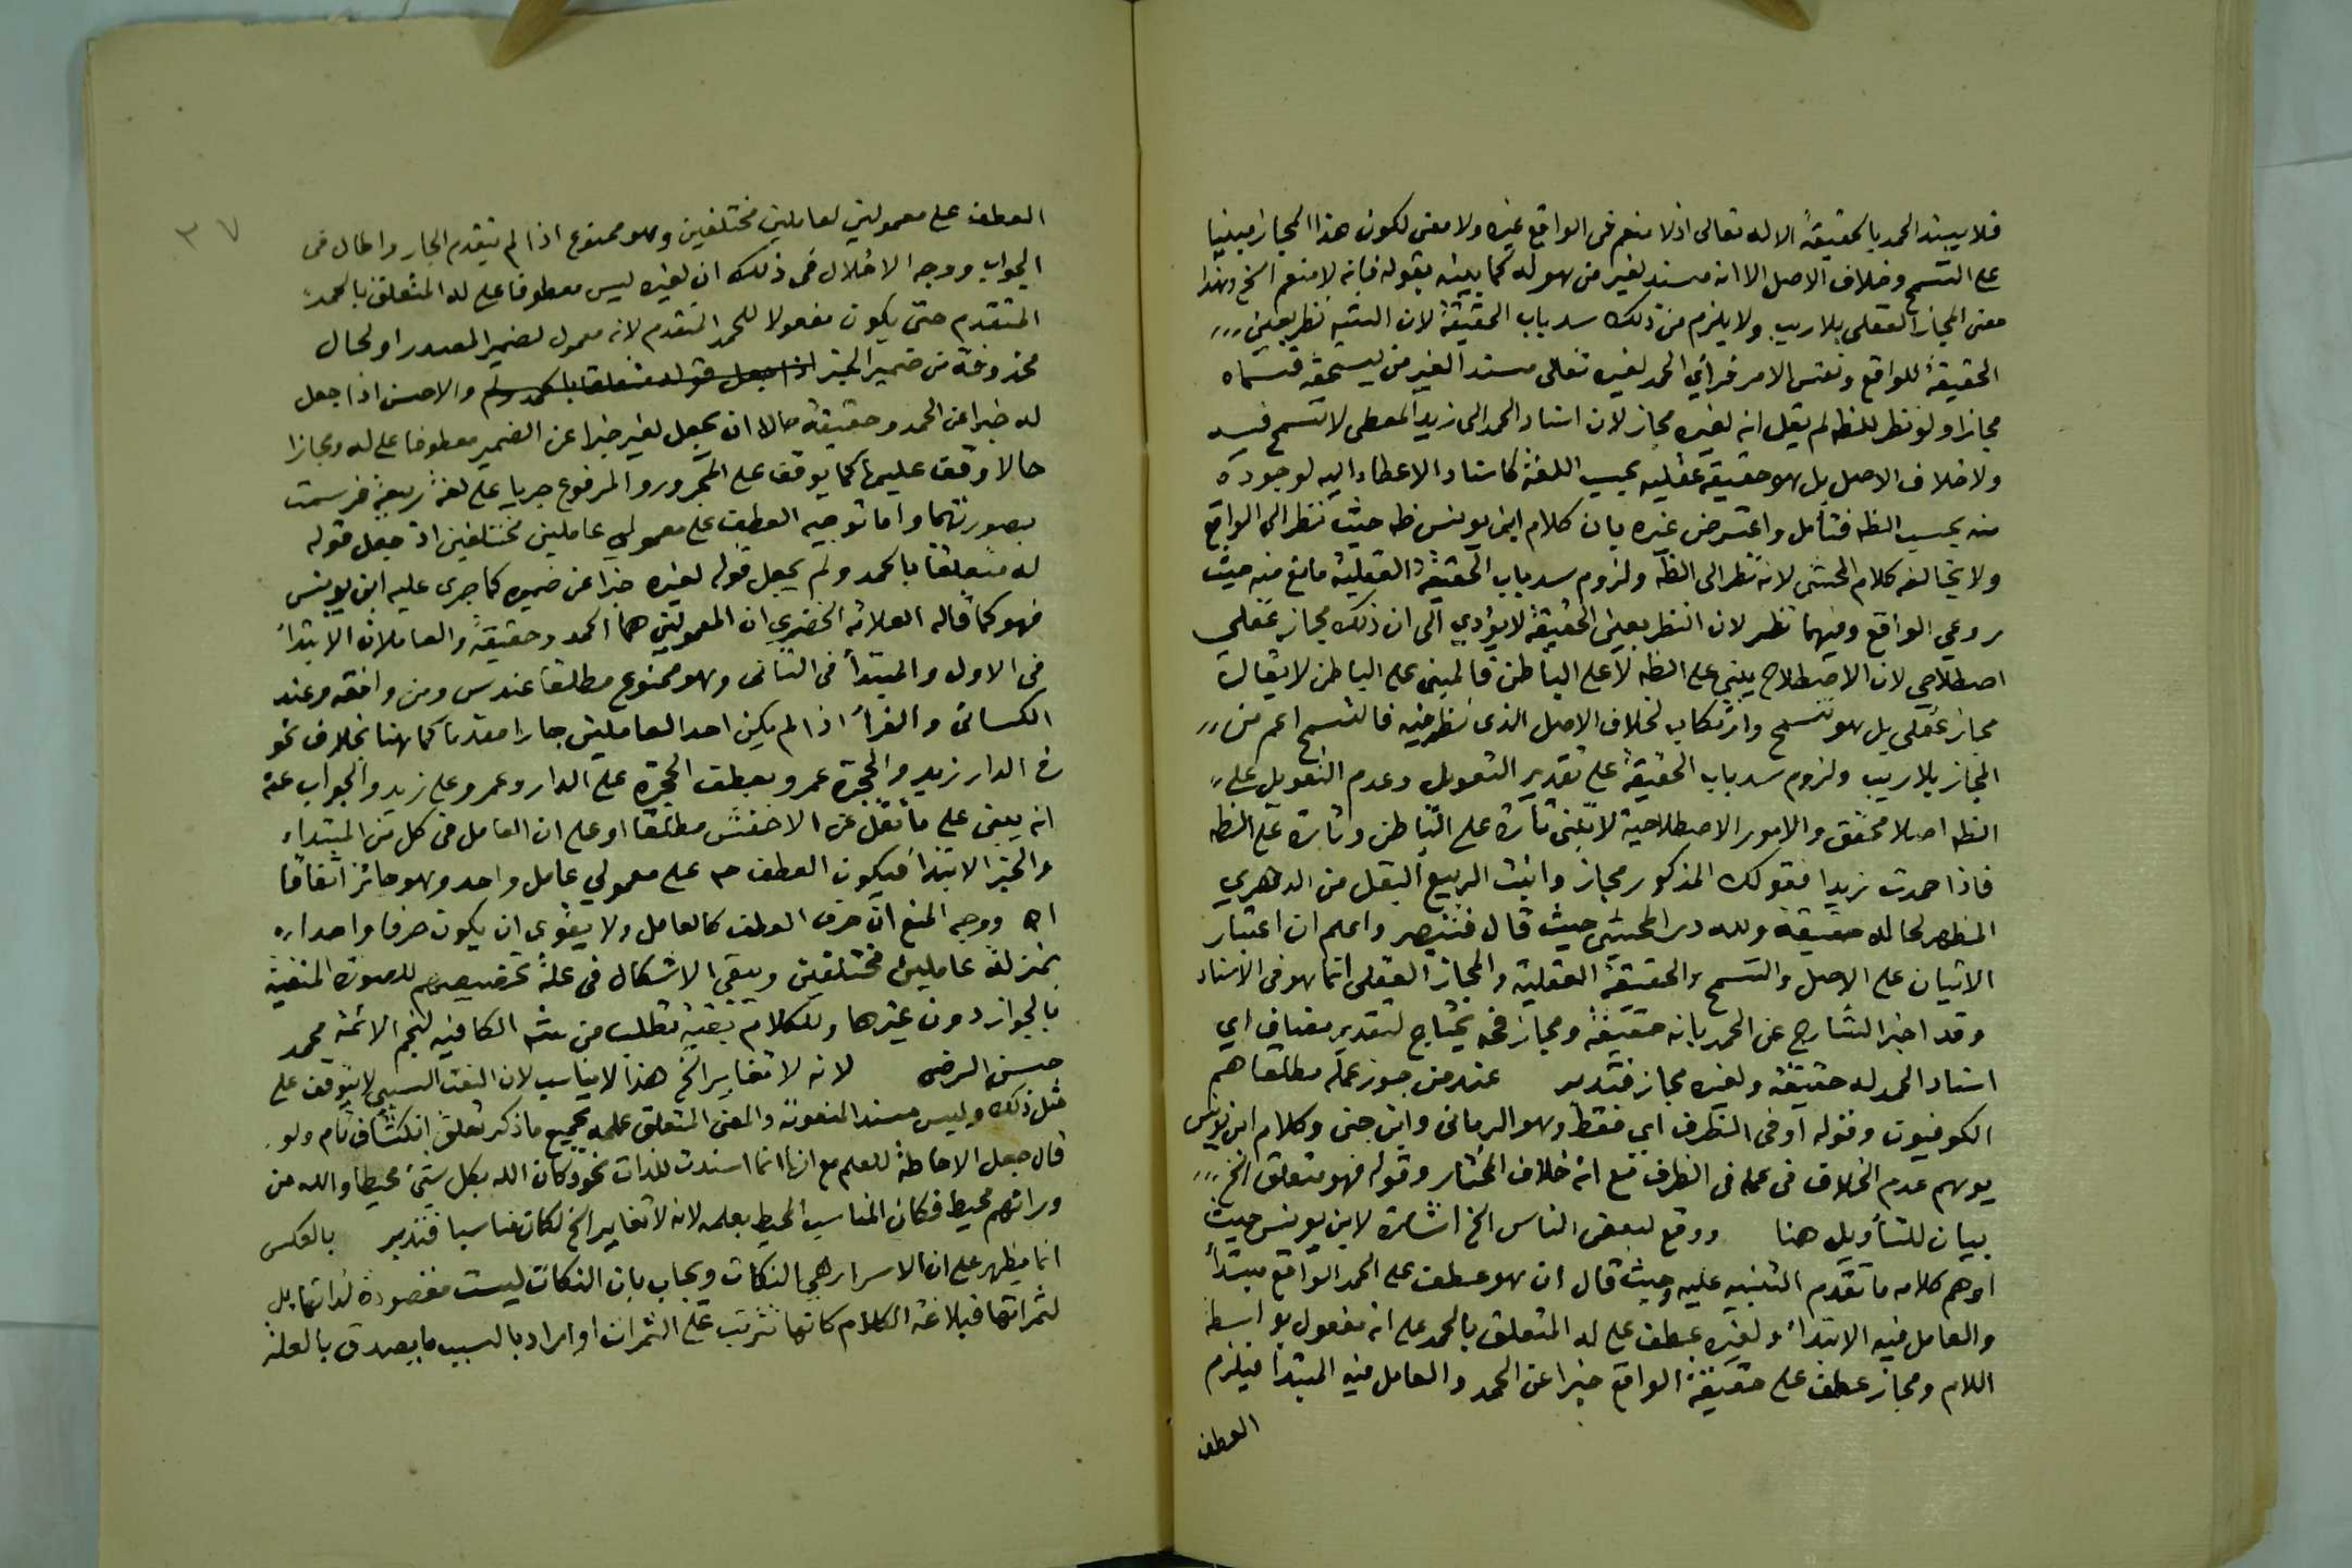 فلا يسند الحمد بالحقيقة الا له تعالى اذ لا منعم فى الواقع غيره ولا معنى لكون هذا المجاز مبنيا
على التسمح وخلاف الاصل الا انه مسند لغير من هو له كما بينه بقوله فانه لا منعم الخ وهذا
معنى المجاز العقلى بلا ريب ولا يلزم من ذلك سد باب الحقيقة لان نظر بعين
الحقيقة للواقع ونفس الامر فرأي الحمد لغيره تعالى مسند الغير من يستحقه فسماه
مجازا ولو نظر للظه لم يقل انه لغيره مجاز لان اسناد الحمد الى زيد المعطى لا تسمح فيه
ولا خلاف الاصل بل هو حقيقة عقلية بحسب اللغة كاسناد الاعطاء اليه لوجوده
منه بحسب الظه فتأمل واعترض غيره بان كلام ابن يونس ظه حيث نظر الى الواقع
ولا يخالفه كلام المحشى لانه نظر الى الظه ولزوم سد باب الحقيقة العقلية مانع منه حيث
روعي الواقع وفيهما نظر لان النظر بعين الحقيقة لا يؤدي الى ان ذلك مجاز عقلي
اصطلاحي لان الاصطلاح يبني على الظه لا على الباطن فالمبنى على الباطن لا يقال
مجاز عقلى بل هو تسمح وارتكاب لخلاف الاصل الذى نظر فيه فالتسمح اعم من
المجاز بلا ريب ولزوم سد باب الحقيقة على تقدير التعويل وعدم التعويل على
الظه اصلا محقق والامور الاصطلاحية لا تبنى تارة على الباطن وتارة على الظه
فاذا حمدت زيدا فقولك المذكور مجاز وانبت الربيع البقل من الدهري
المظهر لحاله حقيقة ولله در المحشي حيث قال فتبصر واعلم ان اعتبار
الاتيان على الاصل والتسمح والحقيقة العقلية والمجاز العقلى انما هو فى الاسناد
وقد اخبر الشارح عن الحمد بانه حقيقة ومجاز فحه يحتاج لتقدير مضاف اي
اسناد الحمد له حقيقة ولغيره مجاز فتدبر عند من جوز عمله مطلقا هم
الكوفيون وقوله او فى الظرف اي فقط وهو الرمانى وابن جنى وكلام ابن يونس
يوهم عدم الخلاف فى عمله فى الظرف مع انه خلاف المختار وقوله فهو متعلق الخ
بيان للتأويل هنا ووقع لبعض الناس الخ اشارة لابن يونس حيث
اوهم كلامه ما تقدم التنبيه عليه وحيث قال ان هو عطف على الحمد الواقع مبتدأ
والعامل فيه الابتدأ ولغيره عطف على له المتعلق بالحمد على انه مفعول بواسطة
اللام ومجاز عطف على حقيقة الواقع خبرا عن الحمد والعامل فيه المبتدأ فيلزم
العطف
٣٧
العطف على معمولين لعاملين مختلفين وهو ممنوع اذا لم يتقدم الجار واطال فى
الجواب ووجه الاخلال فى ذلك ان لغيره ليس معطوفا على له المتعلق بالحمد
المتقدم حتى يكون مفعولا للحمد المتقدم لانه معمول لضمير المصدر او لحال
محذوفة من ضمير الخبر اذا جعل قوله متعلقا بالحمد والاحسن اذا جعل
له خبرا عن الحمد وحقيقة حالا ان يجعل لغير خبرا عن الضمير معطوفا على له ومجازا
حالا وقف عليها كما يوقف على المجرور والمرفوع جريا على لغة ربيعة فرسمت
بصورتهما واما توجيه العطف على معمولي عاملين مختلفين اذ جعل قوله
له متعلقا بالحمد ولم يجعل قوله لغيره خبرا عن ضميره كما جرى عليه ابن يونس
فهو كما قاله العلامه الخضري ان المعمولين هما الحمد وحقيقة والعاملان الابتدأ
فى الاول والمبتدأ فى الثانى وهو ممنوع مطلقا عند س ومن وافقه وعند
الكسائى والفرأ اذا لم يكن احد العاملين جارا مقدما كما هنا بخلاف نحو
فى الدار زيد والحجرة عمرو بعطف الحجرة على الدار وعمرو على زيد والجواب عنه
انه يبنى على ما نقل عن الاخفش مطلقا او على ان العامل فى كل من المبتداء
والخبر الابتدأ فيكون العطف ح على معمولي عامل واحد وهو جائز اتفاقا
اه ووجه المنع ان حرف العطف كالعامل ولا يقوى ان يكون حرفا واحدا
بمنزلة عاملين مختلفين ويبقى الاشكال فى علة تخصيصهم للصورة
بالجواز دون غيرها وللكلام بقية تطلب من الكافيه لنجم الائمة محمد
حسن الرضى لانه لا تغاير الخ هذا لا يناسب لان النعت السببي لا يتوقف على
مثل ذلك وليس مسند المنعوته والمعنى المتعلق علمه بجميع ما ذكر تعلق انكشاف تام ولو
قال جعل الاحاطة للعلم مع انها انما اسندت للذات نحو وكان الله بكل شئ محيطا والله من
ورائهم محيط فكان المناسب المحيط بعلمه لانه لا تغاير الخ لكان مناسبا فتدبر بالعكس
انما يظهر على ان الاسرار هي النكات ويجاب بان النكات ليست مقصودة لذاتها بل
لثمراتها فبلاغة الكلام كانها تترتب على الثمرات او اراد بالسبب ما يصدق بالعلة